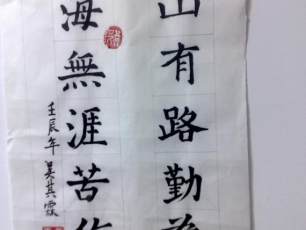 山有路勤為
海無涯苦作
壬辰年 吳其霖